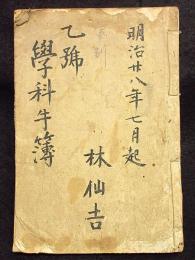 明治廿八年七月起
乙號
學科牛簿
林仙吉